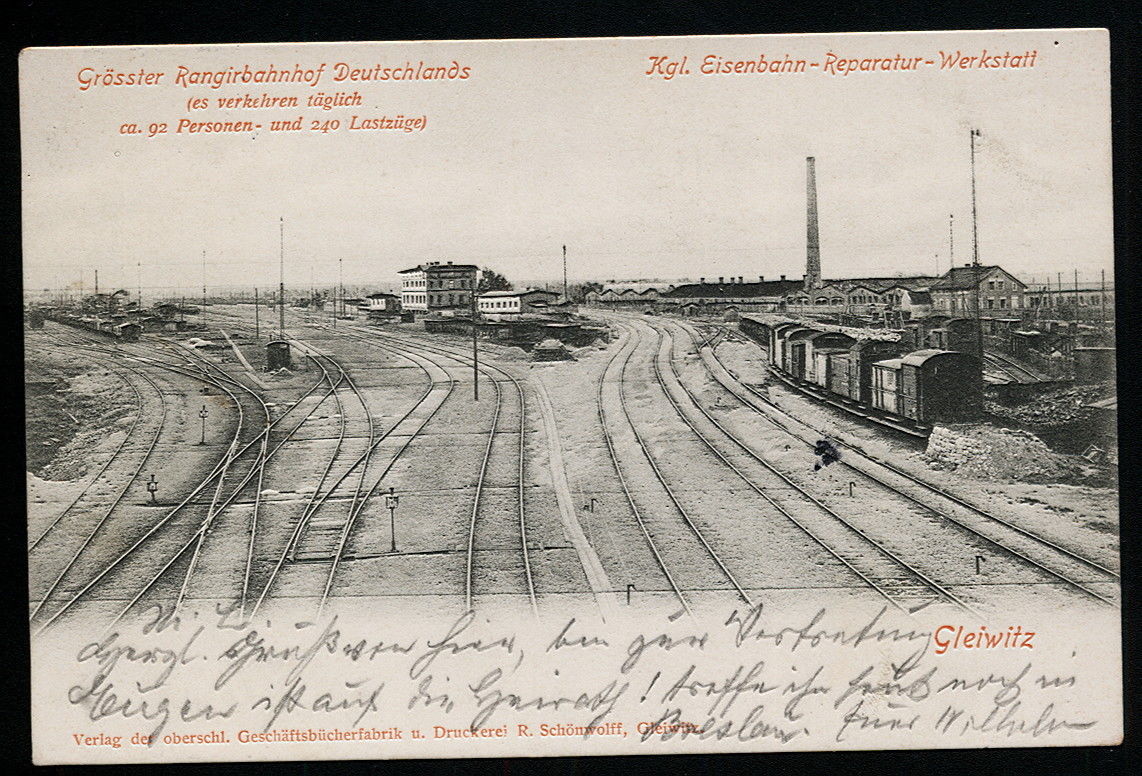 Grösster Rangirbahnhof Deutschlands
(es verkehren täglich
ca. 92 Personen- und 240 Lastzüge)
Kgl. Eisenbahn-Reparatur-Werkstatt
Gleiwitz
M. L.
Herzl. Gruß von hier, bin zur Vertretung
Eugen ist auf die Heirath! treffe ihn heut noch in
Breslau. Euer Wilhelm
Verlag der oberschl. Geschäftsbücherfabrik u. Druckerei R. Schönwolff, Gleiwitz.